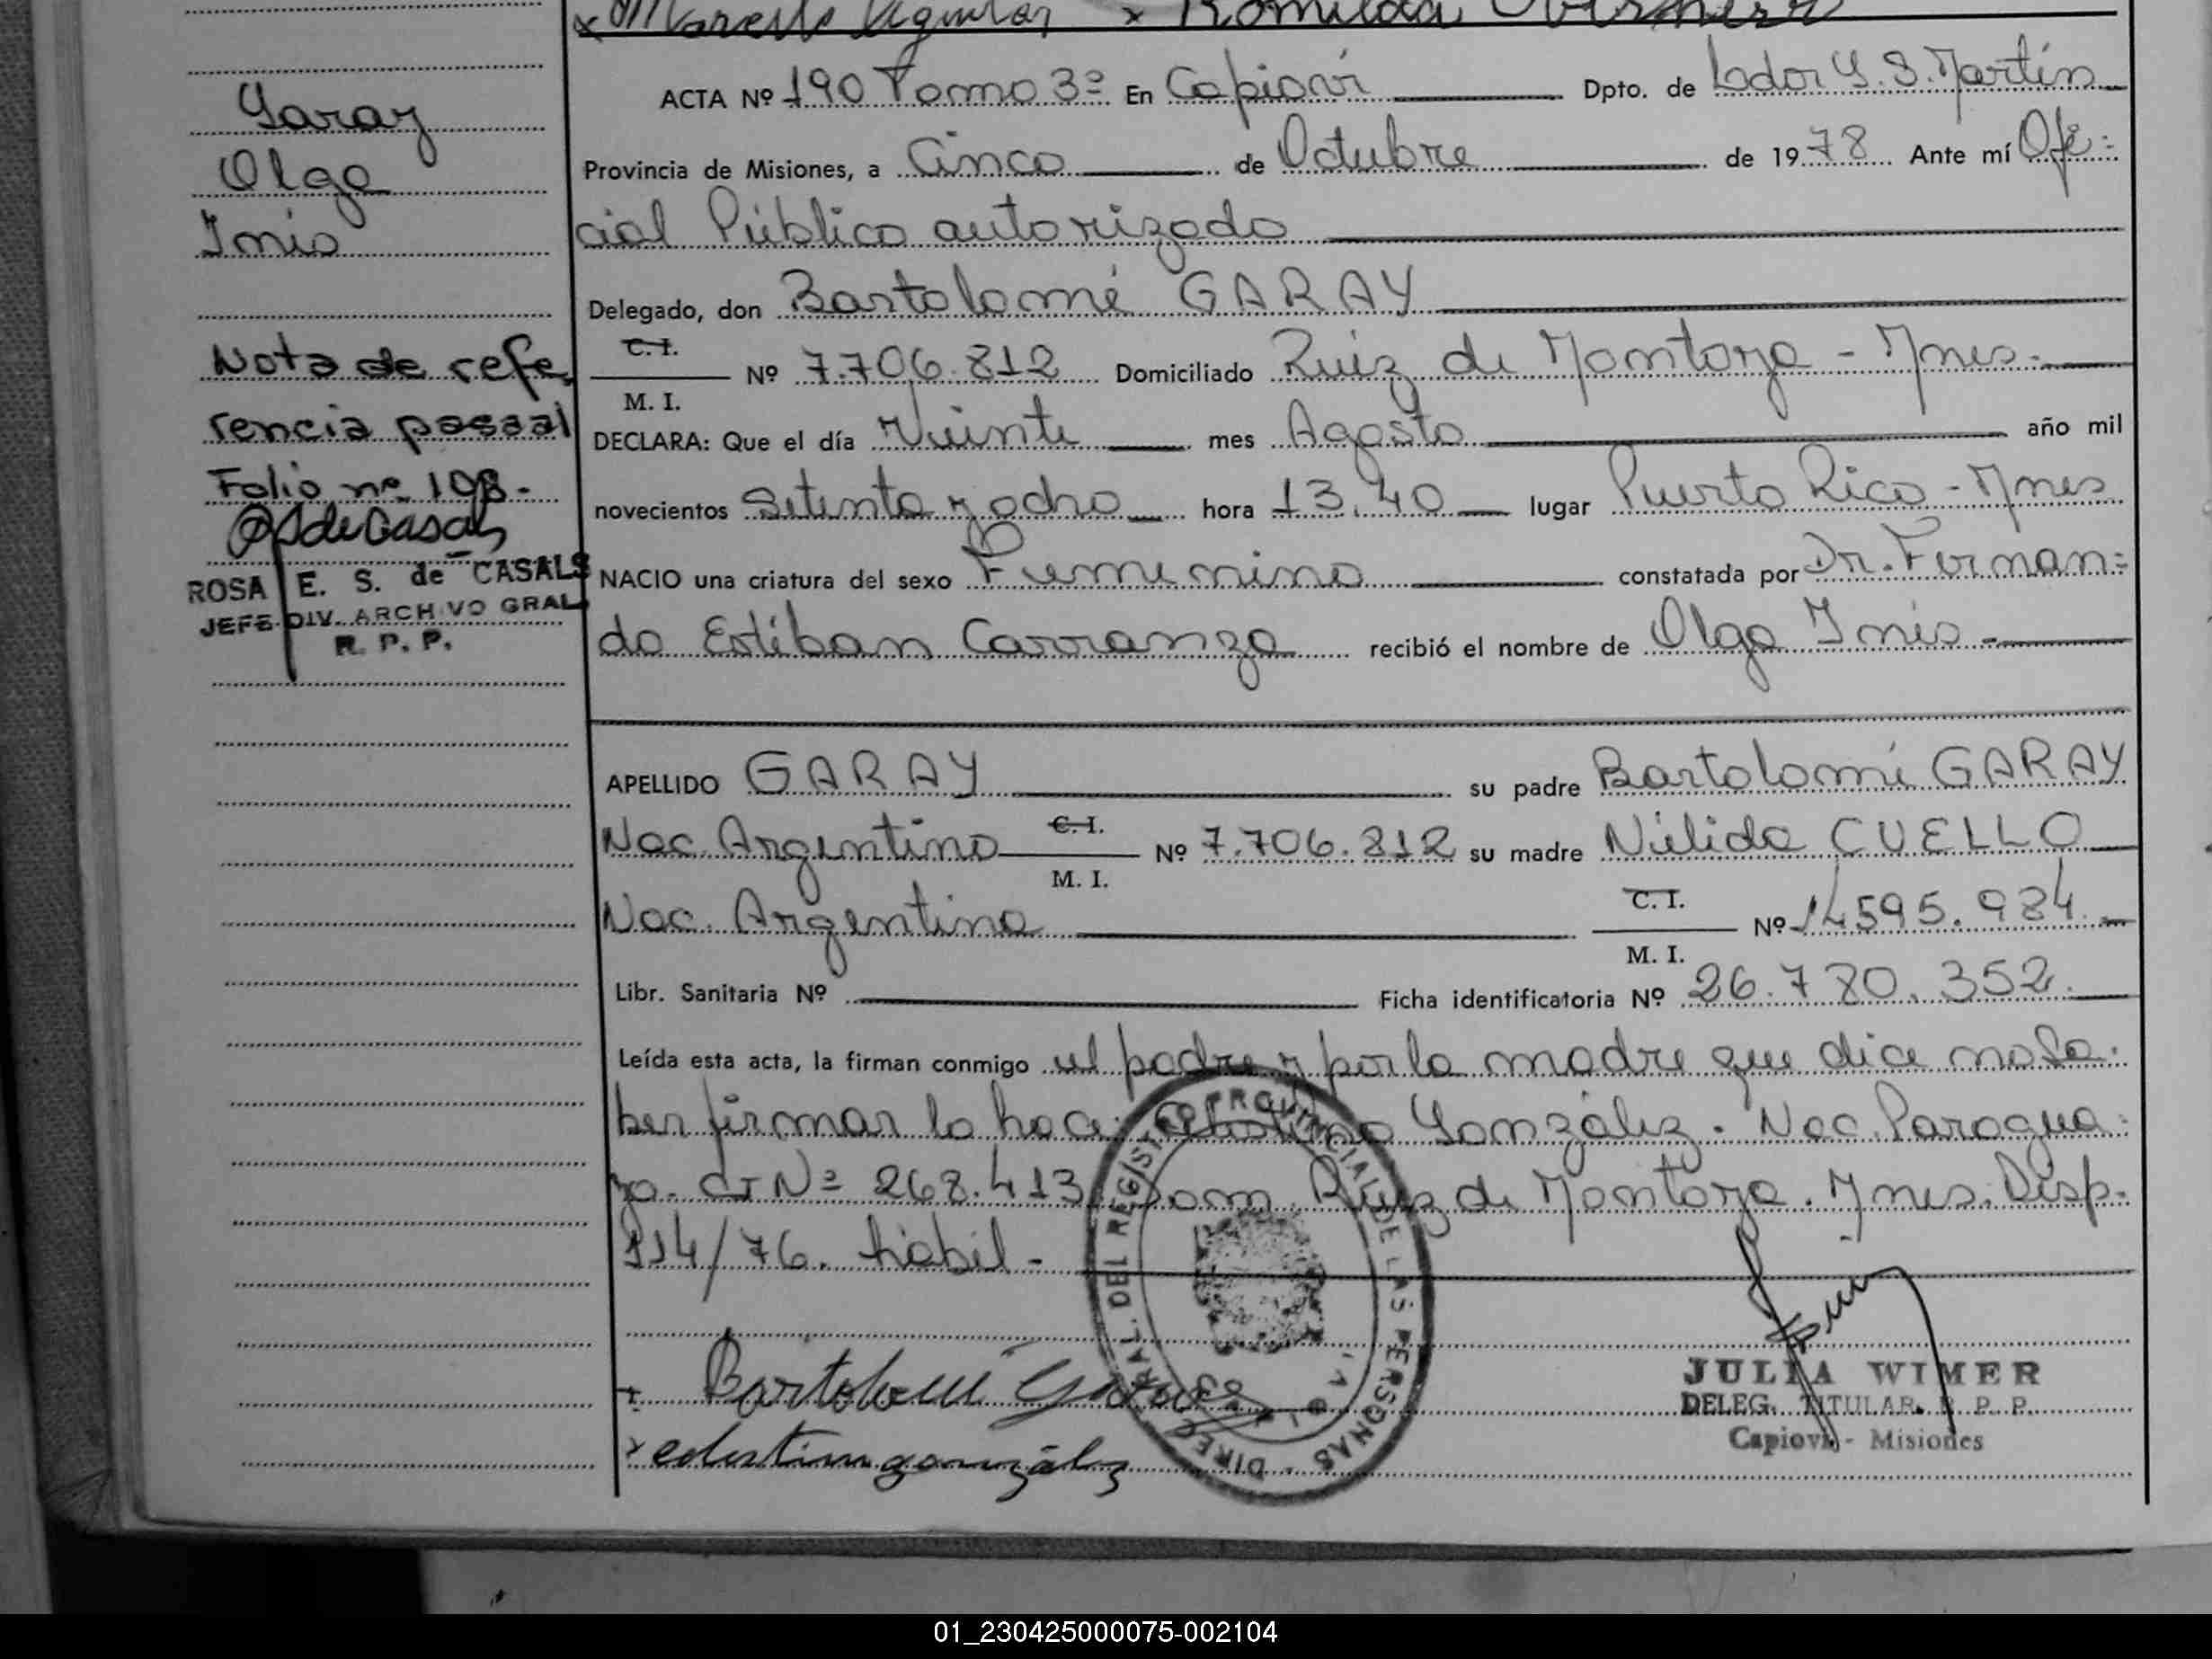 x Marcelo Aguilar x Romilda
ACTA Nº 190 Tomo 3º En Capioví Dpto. de Lador G. S. Martín
Garay
Olga
Inés
Provincia de Misiones, a Cinco de Octubre de 1978 Ante mí Ofi-
cial Público autorizado
Delegado, don Bartolomé GARAY
C. I.
M. I.
Nº 7.706.812 Domiciliado Ruiz de Montoya - Mnes.
Nota de refe
rencia pasaal
Folio nº 108.-
ROSA E. S. de CASALS
JEFE DIV. ARCHIVO GRAL
R. P. P.
DECLARA: Que el día Veinte mes Agosto año mil
novecientos Setenta y ocho hora 13,40 lugar Puerto Rico - Mnes
NACIO una criatura del sexo Femenino constatada por Dr. Fernan-
do Esteban Carranza recibió el nombre de Olga Inés -
APELLIDO GARAY su padre Bartolomé GARAY
Nac. Argentino C. I. Nº 7.706.812 su madre Nélida CUELLO
M. I.
Nac. Argentina C. I. Nº 14595.984.-
M. I.
Libr. Sanitaria Nº Ficha identificatoria Nº 26.780.352.
Leída esta acta, la firman conmigo el padre y por la madre que dice no sa-
ber firmar lo hace: Celestino González. Nac. Paragua-
yo. CI Nº 268.413 Dom. Ruiz de Montoya. Mnes. Disp.
114/76. habil -
x Bartolomé Garay
x celestino gonzález
DIREC. GRAL. DEL REGISTRO PROVINCIAL DE LAS PERSONAS
JULIA WIMER
DELEG. TITULAR R. P. P.
Capioví - Misiones
01_230425000075-002104